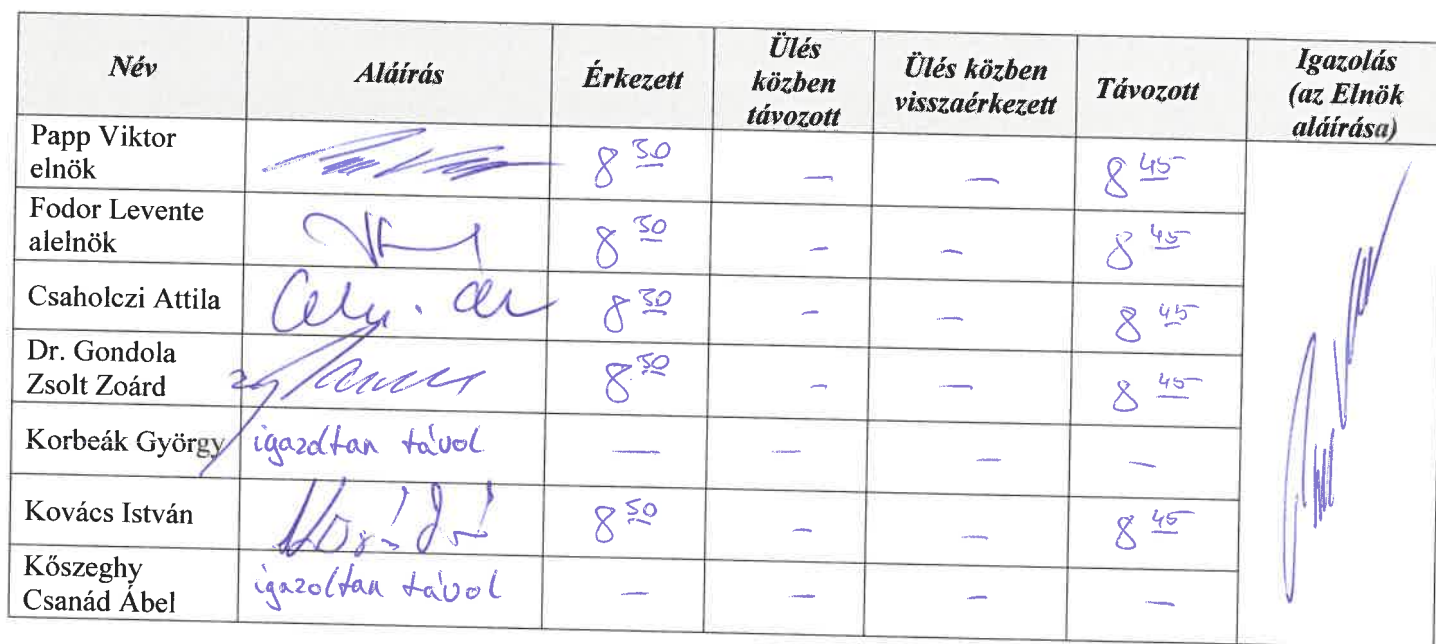 Név Aláírás Érkezett Ülés közben távozott Ülés közben visszaérkezett Távozott Igazolás (az Elnök aláírása)
Papp Viktor
elnök 8 30 – – 8 45
Fodor Levente
alelnök 8 30 – – 8 45
Csaholczi Attila 8 30 – – 8 45
Dr. Gondola
Zsolt Zoárd 8 30 – – 8 45
Korbeák György igazoltan távol – – – –
Kovács István 8 30 – – 8 45
Kőszeghy
Csanád Ábel igazoltan távol – – – –